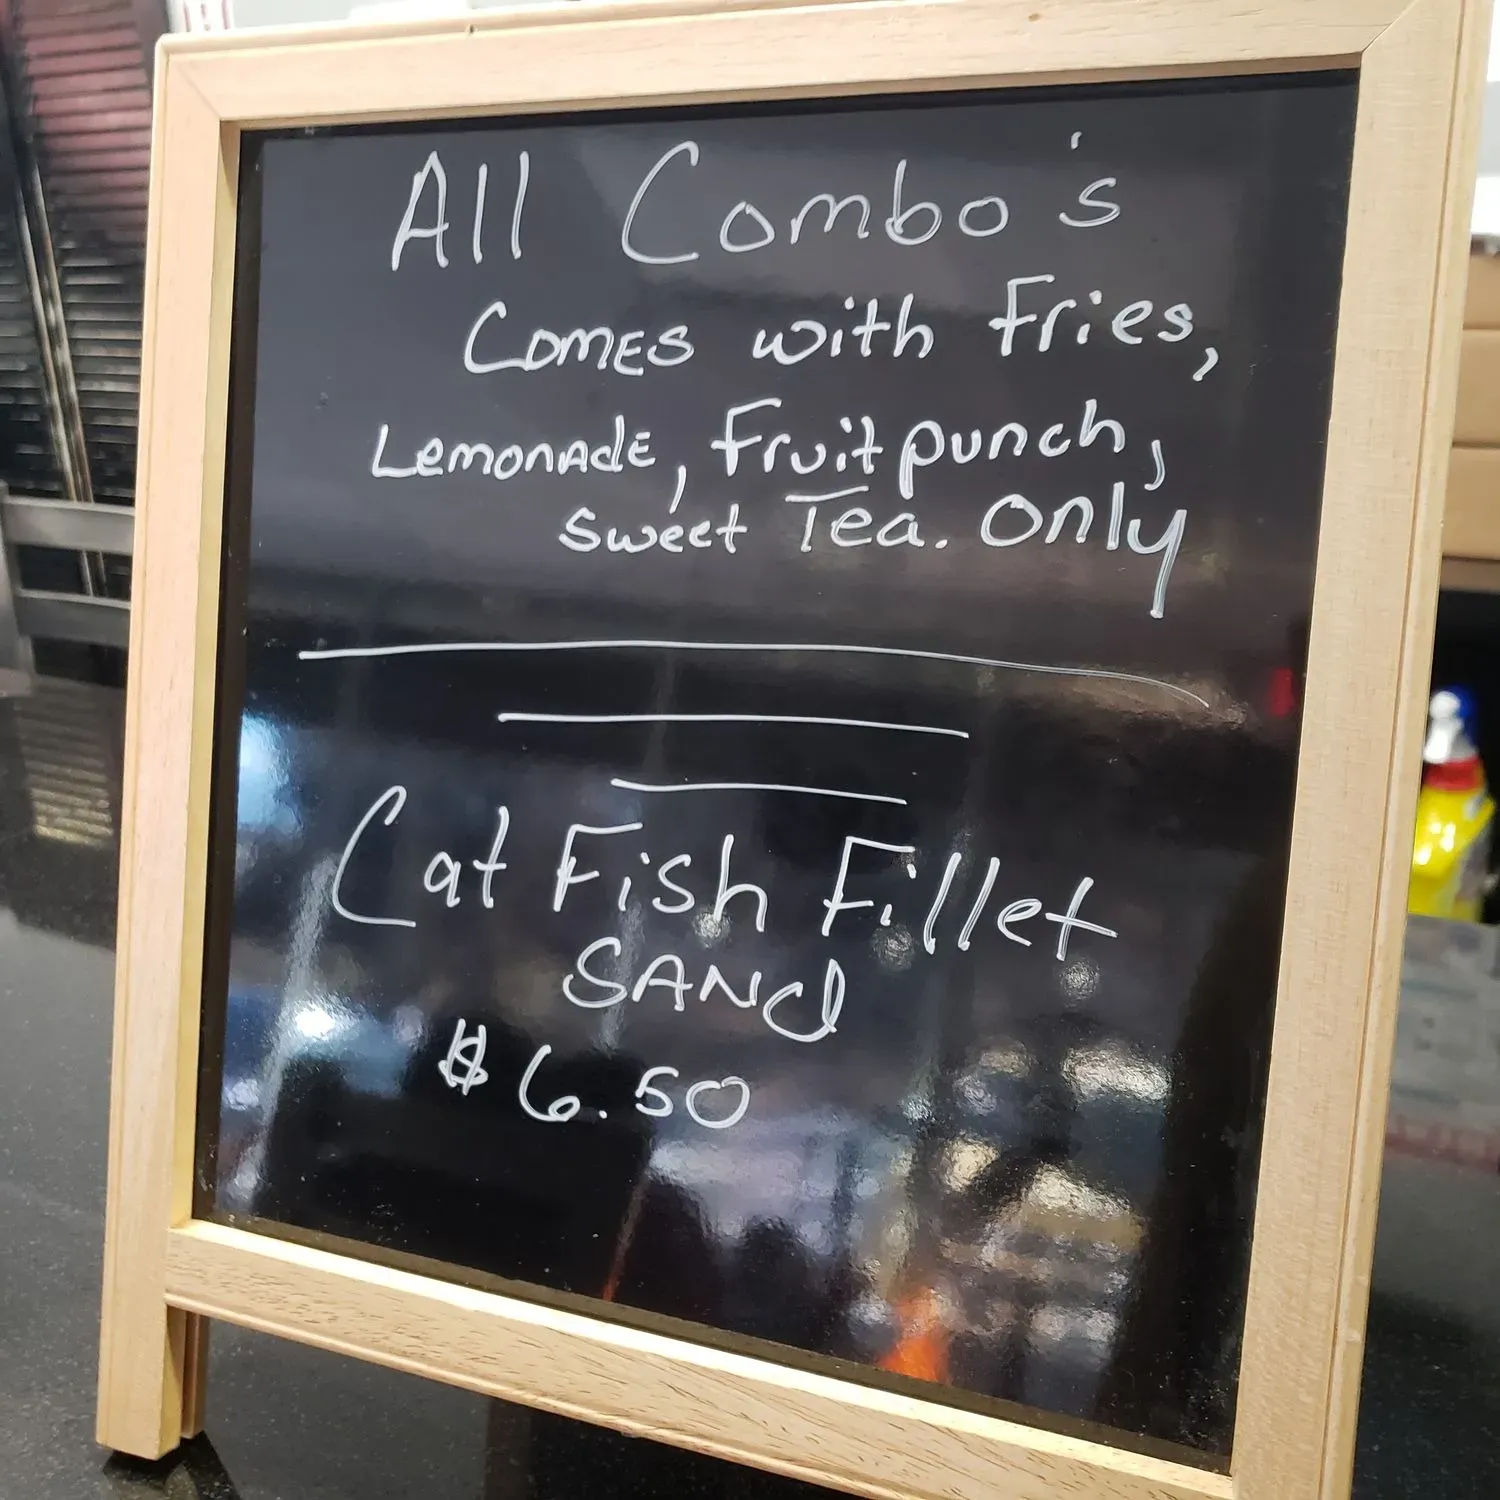 All Combo's
Comes with Fries,
Lemonade, Fruit punch,
Sweet Tea. Only
Cat Fish Fillet
SANd
$6.50